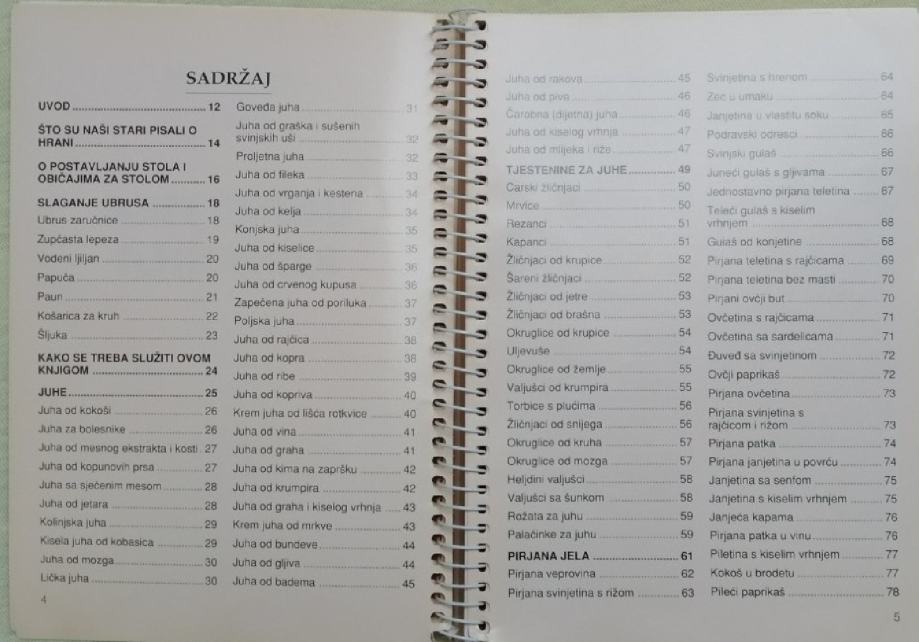 SADRŽAJ
UVOD 12
ŠTO SU NAŠI STARI PISALI O
HRANI 14
O POSTAVLJANJU STOLA I
OBIČAJIMA ZA STOLOM 16
SLAGANJE UBRUSA 18
Ubrus zaručnice 18
Zupčasta lepeza 19
Vodeni ljiljan 20
Papuča 20
Paun 21
Košarica za kruh 22
Šljuka 23
KAKO SE TREBA SLUŽITI OVOM
KNJIGOM 24
JUHE 25
Juha od kokoši 26
Juha za bolesnike 26
Juha od mesnog ekstrakta i kosti 27
Juha od kopunovih prsa 27
Juha sa sječenim mesom 28
Juha od jetara 28
Kolinjska juha 29
Kisela juha od kobasica 29
Juha od mozga 30
Lička juha 30
4
Goveđa juha 31
Juha od graška i sušenih
svinjskih uši 32
Proljetna juha 32
Juha od fileka 33
Juha od vrganja i kestena 34
Juha od kelja 34
Konjska juha 35
Juha od kiselice 35
Juha od šparge 36
Juha od crvenog kupusa 36
Zapečena juha od poriluka 37
Poljska juha 37
Juha od rajčica 38
Juha od kopra 38
Juha od ribe 39
Juha od kopriva 40
Krem juha od lišća rotkvice 40
Juha od vina 41
Juha od graha 41
Juha od kima na zapršku 42
Juha od krumpira 42
Juha od graha i kiselog vrhnja 43
Krem juha od mrkve 43
Juha od bundeve 44
Juha od gljiva 44
Juha od badema 45
Juha od rakova 45
Juha od piva 46
Čarobna (dijetna) juha 46
Juha od kiselog vrhnja 47
Juha od mlijeka i riže 47
TJESTENINE ZA JUHE 49
Carski žličnjaci 50
Mrvice 50
Rezanci 51
Kapanci 51
Žličnjaci od krupice 52
Šareni žličnjaci 52
Žličnjaci od jetre 53
Žličnjaci od brašna 53
Okruglice od krupice 54
Uljevuše 54
Okruglice od žemlje 55
Valjušci od krumpira 55
Torbice s plućima 56
Žličnjaci od snijega 56
Okruglice od kruha 57
Okruglice od mozga 57
Heljdini valjušci 58
Valjušci sa šunkom 58
Rožata za juhu 59
Palačinke za juhu 59
PIRJANA JELA 61
Pirjana veprovina 62
Pirjana svinjetina s rižom 63
Svinjetina s hrenom 64
Zec u umaku 64
Janjetina u vlastitu soku 65
Podravski odresci 66
Svinjski gulaš 66
Juneći gulaš s gljivama 67
Jednostavno pirjana teletina 67
Teleći gulaš s kiselim
vrhnjem 68
Gulaš od konjetine 68
Pirjana teletina s rajčicama 69
Pirjana teletina bez masti 70
Pirjani ovčji but 70
Ovčetina s rajčicama 71
Ovčetina sa sardelicama 71
Đuveđ sa svinjetinom 72
Ovčji paprikaš 72
Pirjana ovčetina 73
Pirjana svinjetina s
rajčicom i rižom 73
Pirjana patka 74
Pirjana janjetina u povrću 74
Janjetina sa senfom 75
Janjetina s kiselim vrhnjem 75
Janjeća kapama 76
Pirjana patka u vinu 76
Piletina s kiselim vrhnjem 77
Kokoš u brodetu 77
Pileći paprikaš 78
5